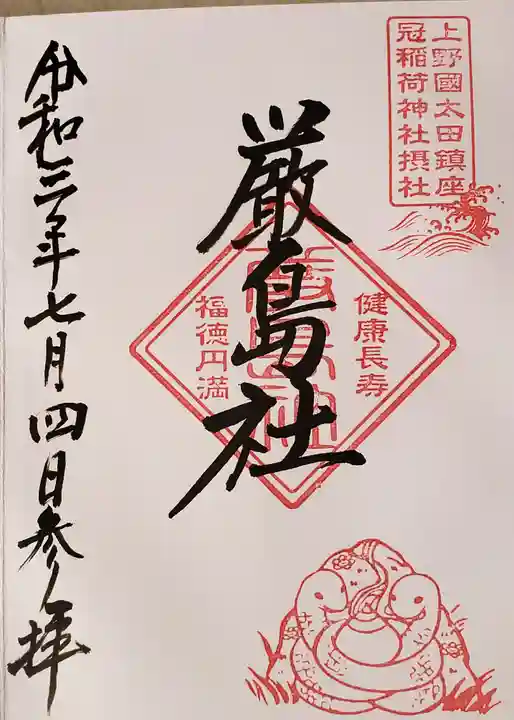 上野國太田鎮座
冠稲荷神社摂社
健康長寿
厳島社
厳島社
福徳円満
令和三年七月四日参拝